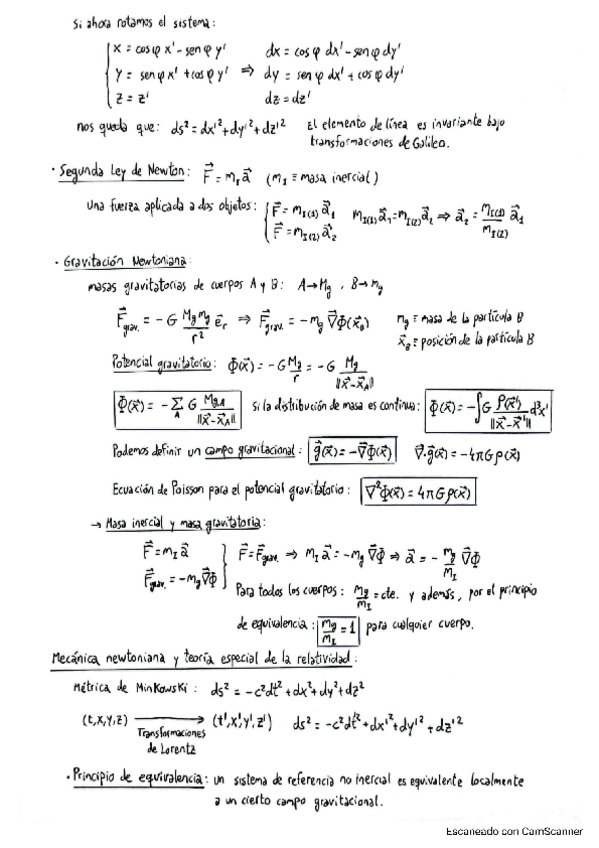 Si ahora rotamos el sistema:
x = cosφ x' - senφ y'    dx = cosφ dx' - senφ dy'
y = senφ x' + cosφ y'  ⇒  dy = senφ dx' + cosφ dy'
z = z'    dz = dz'
nos queda que: ds² = dx'² + dy'² + dz'²    El elemento de línea es invariante bajo
transformaciones de Galileo.
· Segunda Ley de Newton: F⃗ = m_I a⃗    (m_I ≡ masa inercial)
Una fuerza aplicada a dos objetos: { F⃗ = m_I(1) a⃗₁    m_I(1) a⃗₁ = m_I(2) a⃗₂ ⇒ a⃗₂ = m_I(1)/m_I(2) a⃗₁
F⃗ = m_I(2) a⃗₂
· Gravitación Newtoniana:
masas gravitatorias de cuerpos A y B: A → M_g , B → m_g
F⃗_grav. = - G M_g m_g / r² e⃗_r ⇒ F⃗_grav. = - m_g ∇⃗Φ(x⃗_B)    m_g ≡ masa de la partícula B
x⃗_B ≡ posición de la partícula B
Potencial gravitatorio: Φ(x⃗) = - G M_g / r = - G M_g / ||x⃗ - x⃗_A||
Φ(x⃗) = - Σ_A G M_gA / ||x⃗ - x⃗_A||    Si la distribución de masa es continua: Φ(x⃗) = - ∫ G ρ(x⃗') / ||x⃗ - x⃗'|| d³x'
Podemos definir un campo gravitacional: g⃗(x⃗) = - ∇⃗Φ(x⃗)    ∇⃗·g⃗(x⃗) = - 4πGρ(x⃗)
Ecuación de Poisson para el potencial gravitatorio: ∇²Φ(x⃗) = 4πGρ(x⃗)
→ Masa inercial y masa gravitatoria:
F⃗ = m_I a⃗ } F⃗ = F⃗_grav. ⇒ m_I a⃗ = - m_g ∇⃗Φ ⇒ a⃗ = - m_g/m_I ∇⃗Φ
F⃗_grav. = - m_g ∇⃗Φ    Para todos los cuerpos: m_g/m_I = cte. y además, por el principio
de equivalencia: m_g/m_I = 1 para cualquier cuerpo.
Mecánica newtoniana y teoría especial de la relatividad:
Métrica de Minkowski: ds² = - c²dt² + dx² + dy² + dz²
(t,x,y,z) → (t',x',y',z')    ds² = - c²dt'² + dx'² + dy'² + dz'²
Transformaciones
de Lorentz
· Principio de equivalencia: un sistema de referencia no inercial es equivalente localmente
a un cierto campo gravitacional.
Escaneado con CamScanner